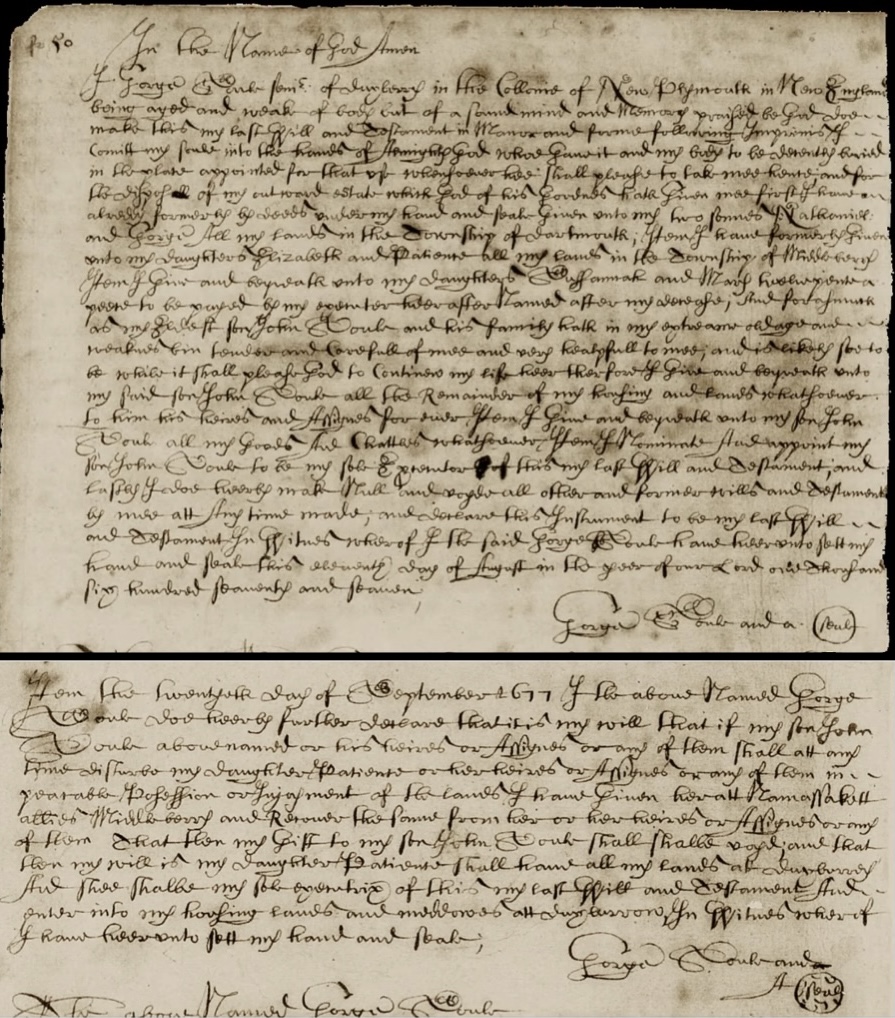 In the Name of God Amen
I Gorge Soule senir: of duxberry in the Collonie of New Plymouth in New England
being aged and weake of body but of a sound mind and Memory praised be God Doe
make this my last Will and Testament in Manor and forme following Imprimis I
Comitt my soule into the hands of Almighty God whoe gave it and my body to be decently buried
in the place appointed for that use whensoever hee shall please to take mee hence; and for
the disposall of my outward estate which God of his Goodnes hath Given mee first I have
alreddy formerly by deeds under my hand and seale Given unto my two sonnes Nathaniel
and Gorge All my lands in the Township of Dartmouth; Item I have formerly Given
unto my daughters Elizabeth and Patience all my lands in the Township of Middleberry
Item I Give and bequeath unto my daughters Sussannah and Mary twelvepence a
peece to be payed by my executer heerafter Named after my decease; And forasmuch
as my Eldest son John Soule and his family hath in my extreame old age and
weaknes bin tender and Carefull of mee and very healpfull to mee; and is likely soe to
be while it shall please God to Continew my life heer therfore I Give and bequeath unto
my said son John Soule all the Remainder of my housing and lands whatsoever
to him his heires and Assignes for ever Item I Give and bequeath unto my son John
Soule all my Goods And Chattles whatsoever Item I Nominate And appoint my
son John Soule to be my sole Executor of this my last Will and Testament; and
lastly I doe heerby make Null and voyde all other and former wills and Testament
by mee att Any time made; and declare this Instrument to be my last Will
and Testament In Witnes wherof I the said Gorge Soule have heerunto sett my
hand and seale this eleventh day of August in the yeer of our Lord one Thousand
six hundred seaventy and seaven;
Gorge Soule and a (seale)
Item the twentyeth day of September 1677 I the above Named Gorge
Soule doe heerby further declare that it is my will that if my son John
Soule above named or his heires or Assignes or any of them shall att any
time disturbe my daughter Patience or her heires or Assignes or any of them in
peacable Posession or Injoyment of the lands I have Given her att Namassakett
allies Middleberry and Recover the same from her or her heires or Assignes or any
of them That then my Gift to my son John Soule shall shalbe voyd; and that
then my will is my daughter Patience shall have all my lands att duxberrey
And shee shalbe my sole executrix of this my last Will and Testament And
enter into my housing lands and meddowes att duxburrow, In Witnes wherof
I have heerunto sett my hand and seale;
Gorge Soule and
A (seale)
The above Named Gorge Soule